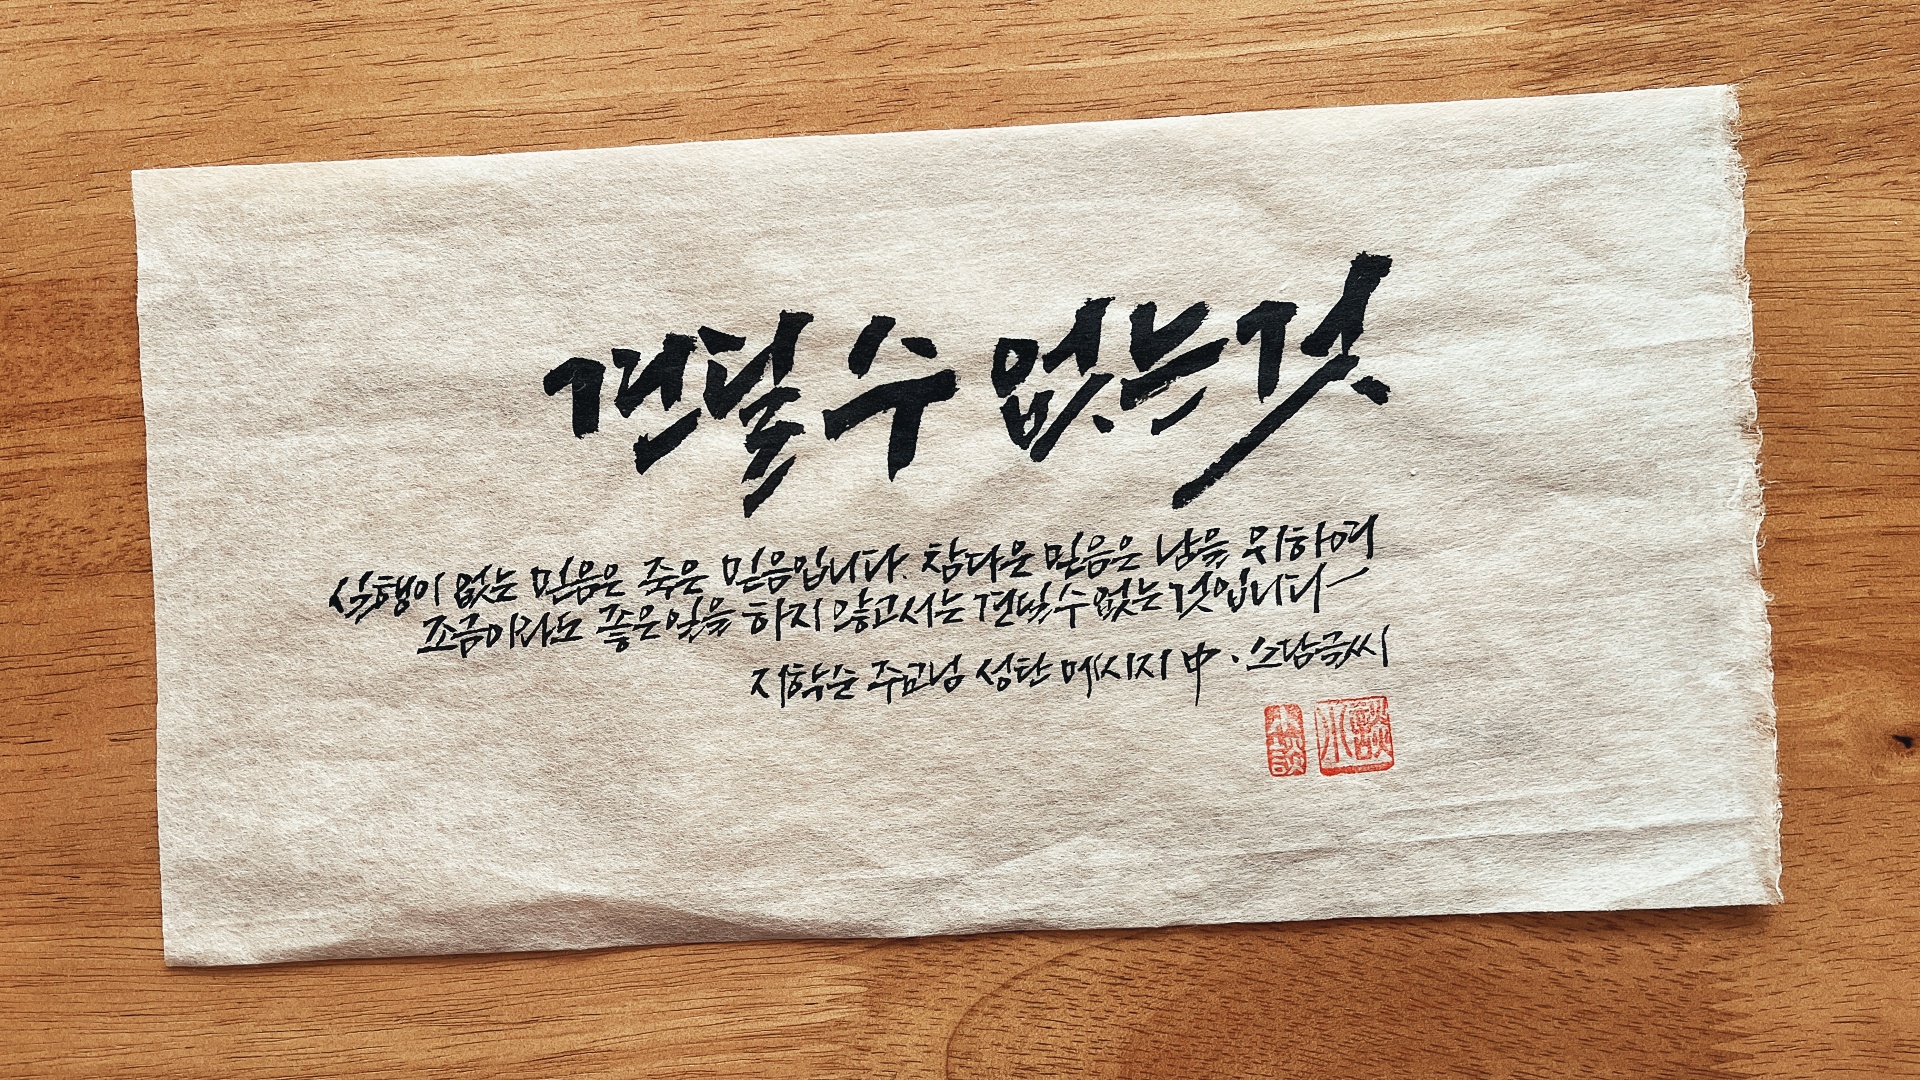 견딜 수 없는 것
실행이 없는 믿음은 죽은 믿음입니다. 참다운 믿음은 남을 위하여
조금이라도 좋은 일을 하지 않고서는 견딜 수 없는 것입니다
지학순 주교님 성탄 메시지 中 · 소담글씨
小談 小談